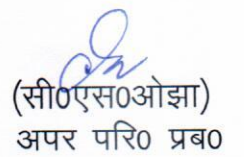 (सी0एस0ओझा)
अपर परि0 प्रब0